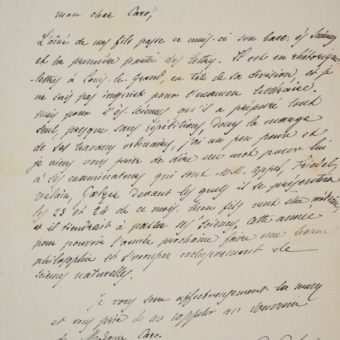 mon cher Caro,
L'aîné de mes fils passe ce mois-ci son bacc. ès sciences
et la première partie des lettres. Il est en rhétorique
lettres à Louis le Grand, en tête de la division, et je
ne suis pas inquiet pour l'examen littéraire.
mais pour l'ès sciences qu'il a préparé tout
seul, presque sans répétitions, dans la marge
de ses travaux ordinaires, j'ai un peu peur et
je viens vous prier de dire un mot pour lui
à ses examinateurs qui sont MM. Appel, Friedel,
Vélain, devant les quels il se présentera
les 23 et 24 de ce mois. Mon fils veut être médecin
et il tiendrait à passer ses sciences cette année
pour pouvoir l'année prochaine faire une bonne
philosophie et s'occuper exclusivement de
sciences naturelles.
Je vous serre affectueusement la main
et vous prie de me rappeler au souvenir
de Madame Caro.